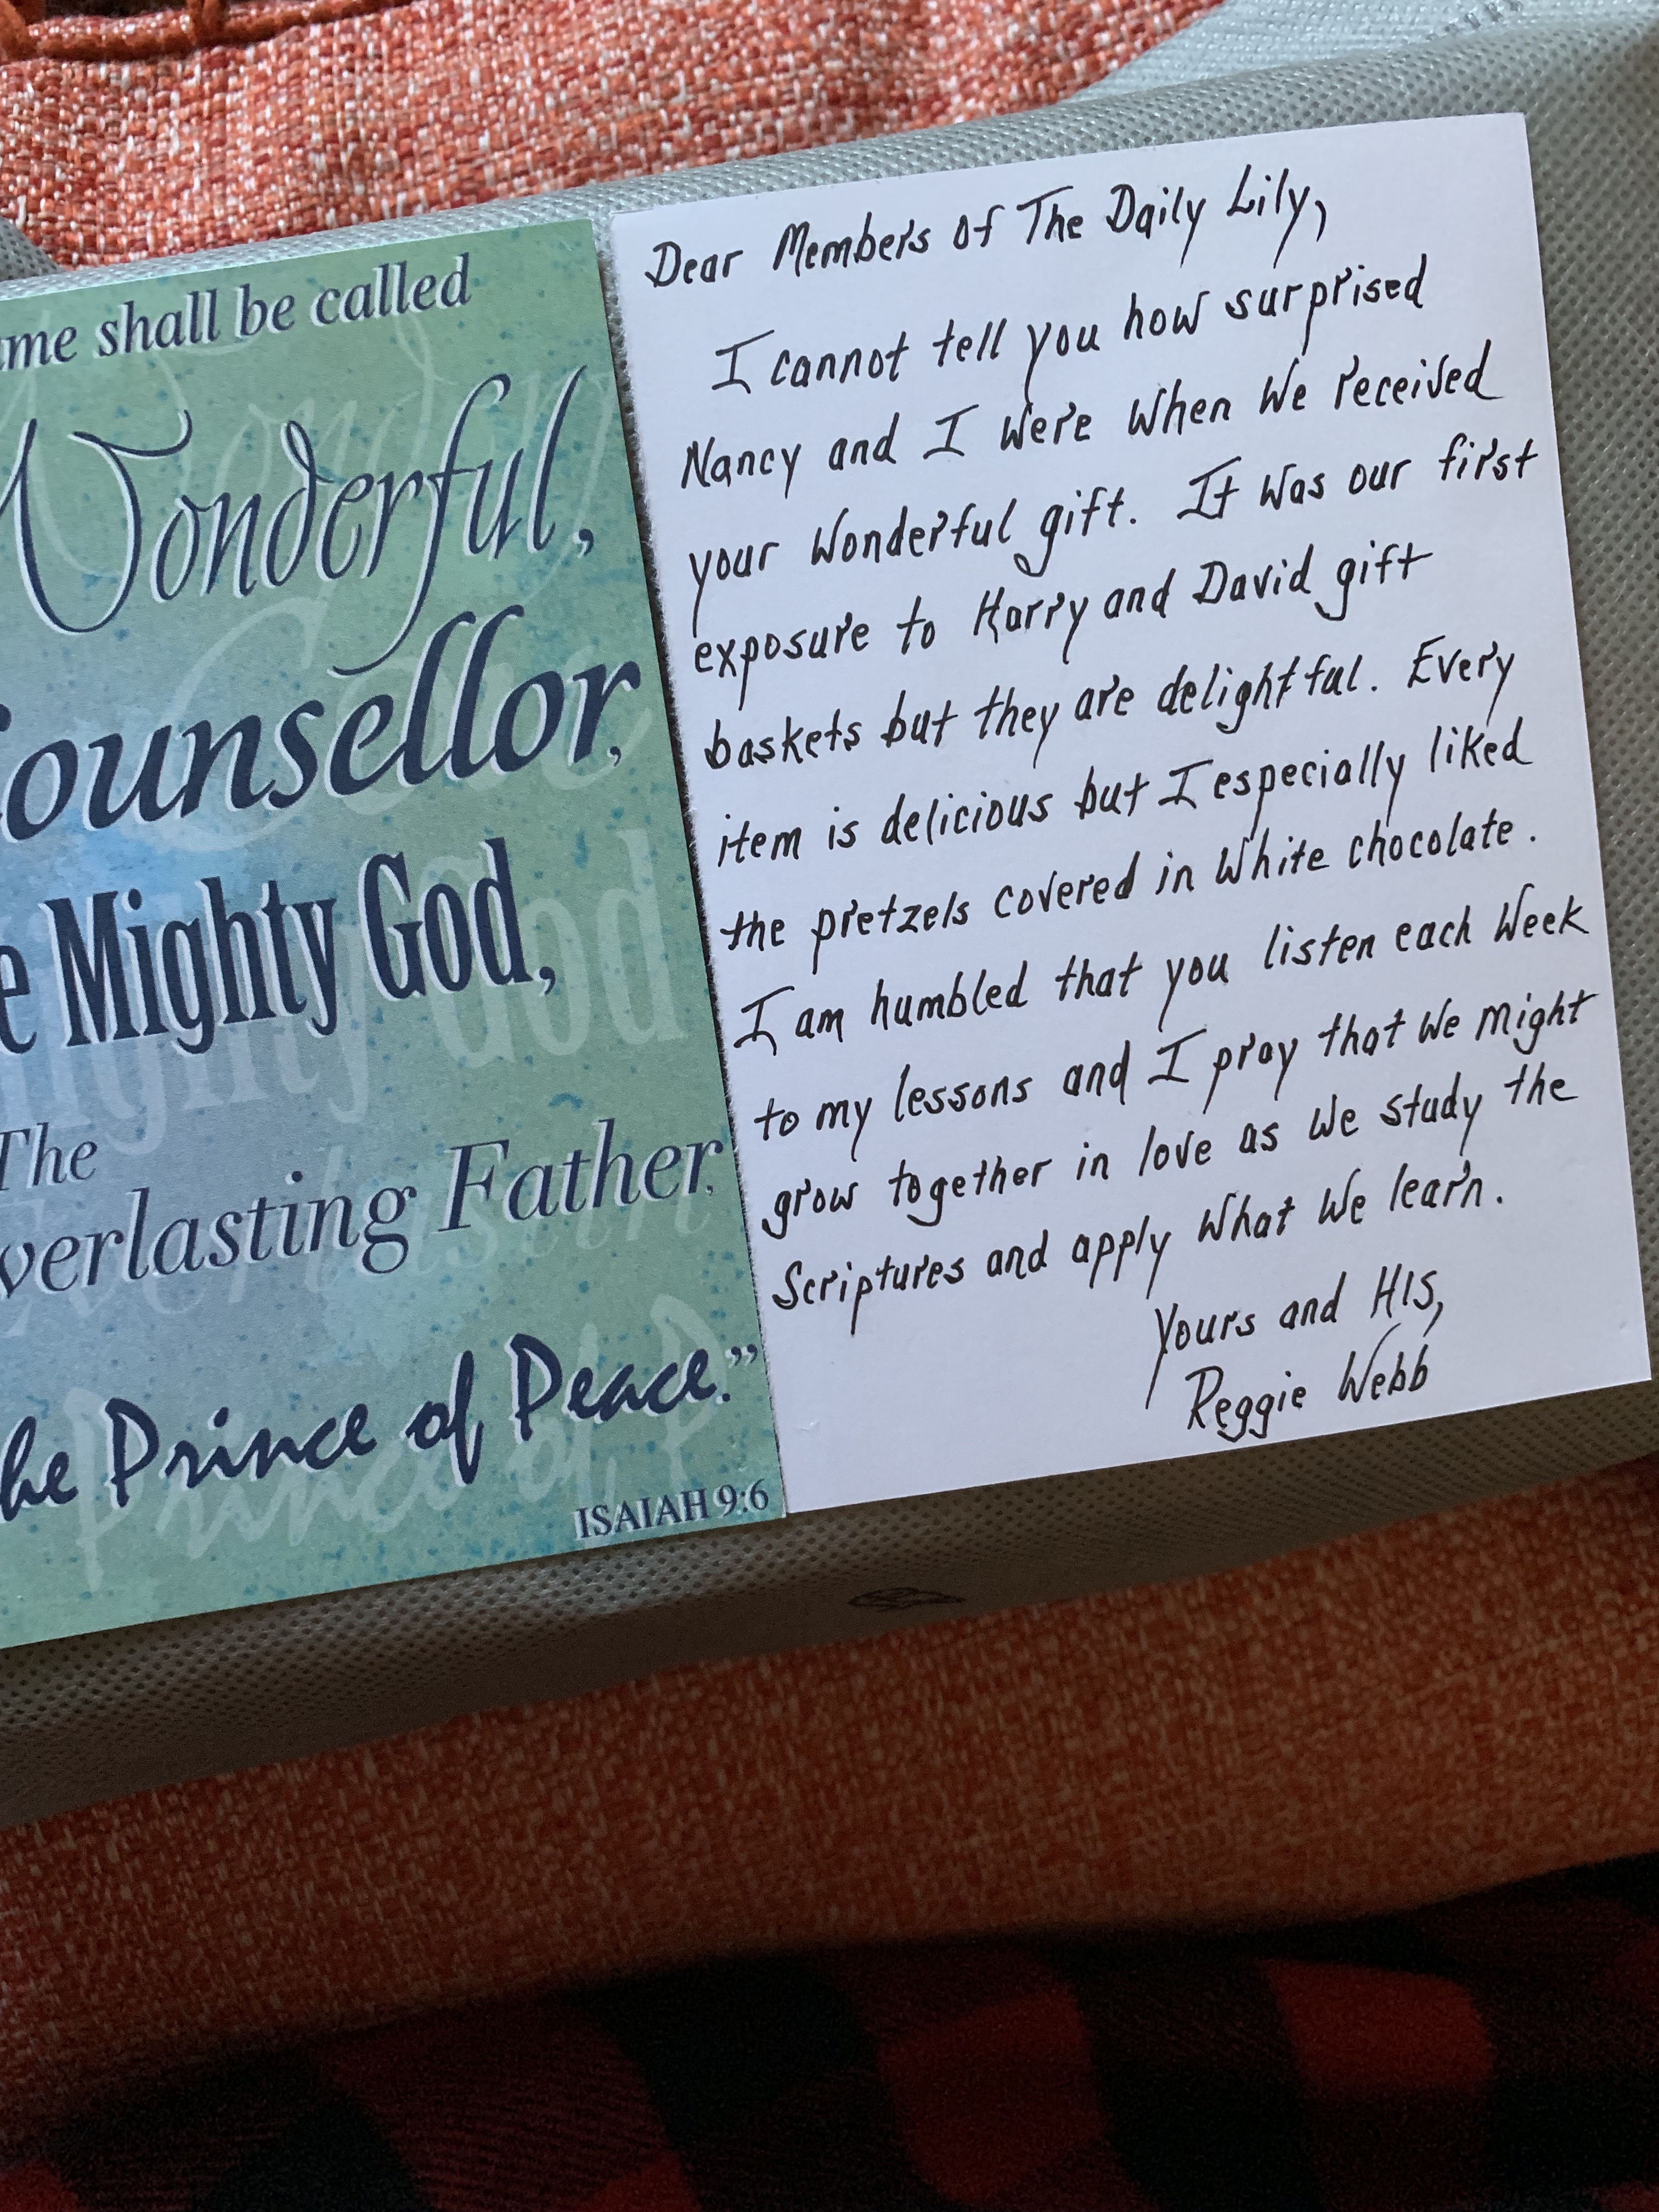 me shall be called
Wonderful,
ounsellor,
e Mighty God,
The
verlasting Father,
he Prince of Peace."
ISAIAH 9:6
Dear Members of The Daily Lily,
I cannot tell you how surprised
Nancy and I were when we received
your wonderful gift. It was our first
exposure to Harry and David gift
baskets but they are delightful. Every
item is delicious but I especially liked
the pretzels covered in white chocolate.
I am humbled that you listen each week
to my lessons and I pray that we might
grow together in love as we study the
Scriptures and apply what we learn.
Yours and HIS,
Reggie Webb